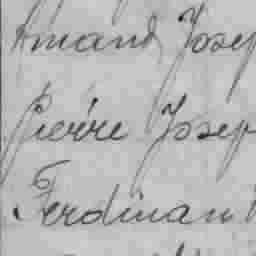 Amand Josep
Pierre Josep
Ferdinan